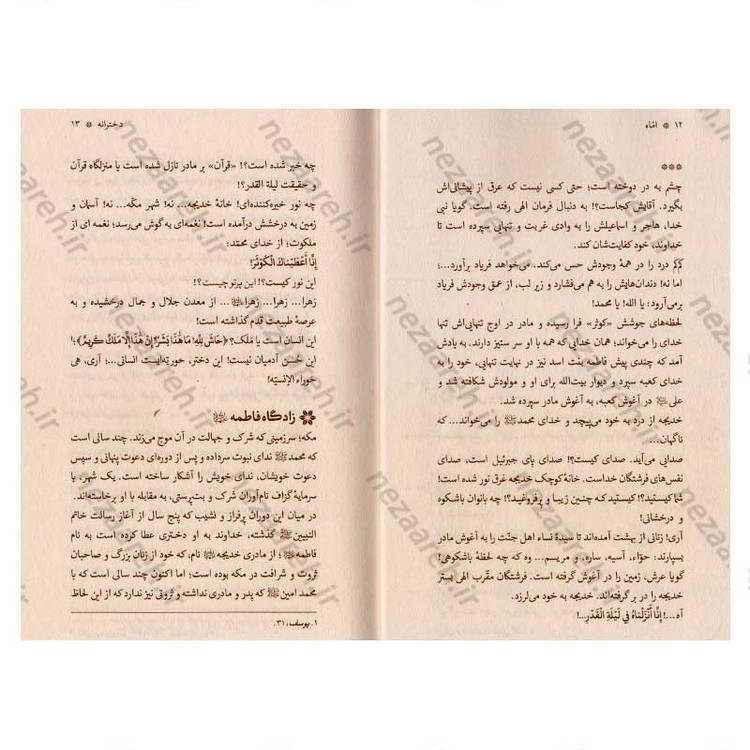 ۱۲ ❊ امّاه
***
چشم به در دوخته است؛ حتی کسی نیست که عرق از پیشانی‌اش
بگیرد. آقایش کجاست؟! به دنبال فرمان الهی رفته است. گویا نبی
خدا، هاجر و اسماعیلش را به وادی غربت و تنهایی سپرده است تا
خداوند، خود کفایت‌شان کند.
کم‌کم درد را در همهٔ وجودش حس می‌کند. می‌خواهد فریاد برآورد...؛
اما نه! دندان‌هایش را به هم می‌فشارد و زیر لب، از عمق وجودش فریاد
برمی‌آورد: یا الله! یا محمد!
لحظه‌های جوشش «کوثر» فرا رسیده و مادر در اوج تنهایی‌اش تنها
خدای را می‌خواند؛ همان خدایی که همه با او سر ستیز دارند. به یادش
آمد که چندی پیش فاطمه بنت اسد نیز در نهایت تنهایی، خود را به
خدای کعبه سپرد و دیوار بیت‌الله برای او و مولودش شکافته شد و
علی در آغوش کعبه، به آغوش مادر سپرده شد.
خدیجه از درد به خود می‌پیچد و خدای محمدﷺ را می‌خواند... که
ناگهان...
صدایی می‌آید. صدای کیست؟! صدای پای جبرئیل است، صدای
نفس‌های فرشتگان خداست. خانهٔ کوچک خدیجه غرق نور شده است!
شما کیستید؟! کیستید که چنین زیبا و پرفروغید؟! چه بانوان باشکوه
و درخشانی!
آری! زنانی از بهشت آمده‌اند تا سیدهٔ نساء اهل جنّت را به آغوش مادر
بسپارند: حوّاء، آسیه، ساره، و مریم... وه که چه لحظهٔ باشکوهی!
گویا عرش، زمین را در آغوش گرفته است. فرشتگان مقرّب الهی بستر
خدیجه را در بر گرفته‌اند. خدیجه به خود می‌لرزد.
آه...! إِنَّا أَنْزَلْنَاهُ فِي لَيْلَةِ الْقَدْرِ...!
دخترانه ❊ ۱۳
چه خبر شده است؟! «قرآن» بر مادر نازل شده است یا منزلگاه قرآن
و حقیقت لیلة القدر؟!
چه نور خیره‌کننده‌ای! خانهٔ خدیجه... نه! شهر مکّه... نه! آسمان و
زمین به درخشش درآمده است! نغمه‌ای به گوش می‌رسد؛ نغمه ای از
ملکوت؛ از خدای محمّد:
إِنَّا أَعْطَيْنَاكَ الْكَوْثَرَ!
این نور کیست؟! این پرتو چیست؟!
زهرا... زهرا... زهرا... از معدن جلال و جمال درخشیده و به
عرصهٔ طبیعت قدم گذاشته است!
این انسان است یا ملَک؟ ﴿حَاشَ لِلَّهِ مَا هٰذَا بَشَرًا إِنْ هٰذَا إِلَّا مَلَكٌ كَرِيمٌ﴾؛۱
این حُسن آدمیان نیست! این دختر، حوریّه‌ایست انسانی...؛ آری، هی
حوراء الإنسیّة!
زادگاه فاطمه
مکه؛ سرزمینی که شرک و جهالت در آن موج می‌زند. چند سالی است
که محمدﷺ ندای نبوت سرداده و پس از دوره‌ای دعوت پنهانی و سپس
دعوت خویشان، ندای خویش را آشکار ساخته است. یک شهر، با
سرمایهٔ گزاف نام‌آوران شرک و بت‌پرستی، به مقابله با او برخاسته‌اند.
در میان این دوران پرفراز و نشیب که پنج سال از آغاز رسالت خاتم
النبیینﷺ گذشته، خداوند به او دختری عطا کرده است به نام
فاطمه؛ از مادری خدیجه نام، که خود از زنان بزرگ و صاحبان
ثروت و شرافت در مکه بوده است؛ اما اکنون چند سالی است که با
محمد امینﷺ که پدر و مادری نداشته و ثروتی نیز ندارد که از این لحاظ
۱. یوسف، ۳۱.
nezaareh.ir